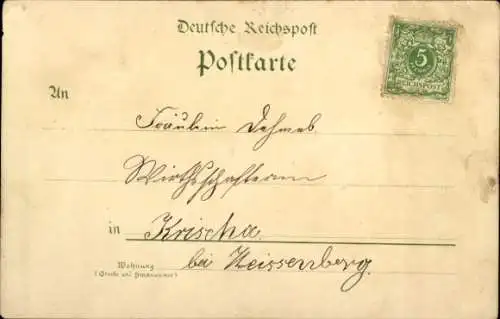 Deutsche Reichspost
Postkarte
An
5
REICHSPOST
Fräulein Dehmel
Wirthschafterin
in Krischa
bei Weissenberg.
Wohnung
(Straße und Hausnummer)